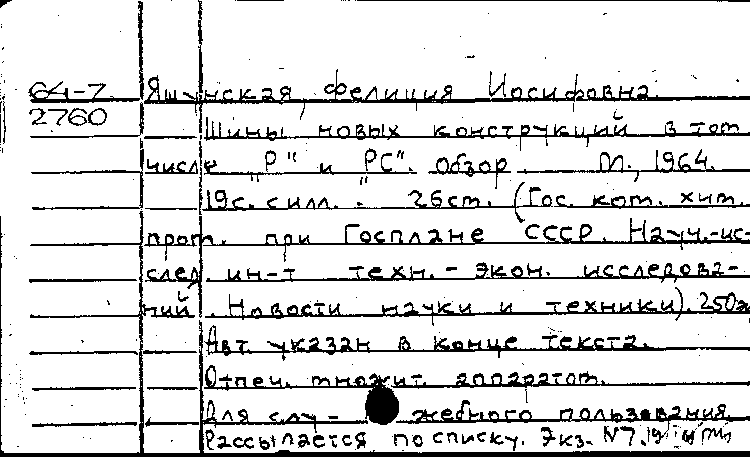 64-7 Яшунская, Фелиция Иосифовна.
2760
Шины новых конструкций в том
числе "Р" и "РС". Обзор. М., 1964.
19с. с илл. 26см. (Гос. ком. хим.
пром. при Госплане СССР. Науч.-ис-
след. ин-т техн.-экон. исследова-
ний. Новости науки и техники). 250э
Авт. указан в конце текста.
Отпеч. множит. аппаратом.
Для слу- жебного пользования.
Рассылается по списку. Экз. №7.